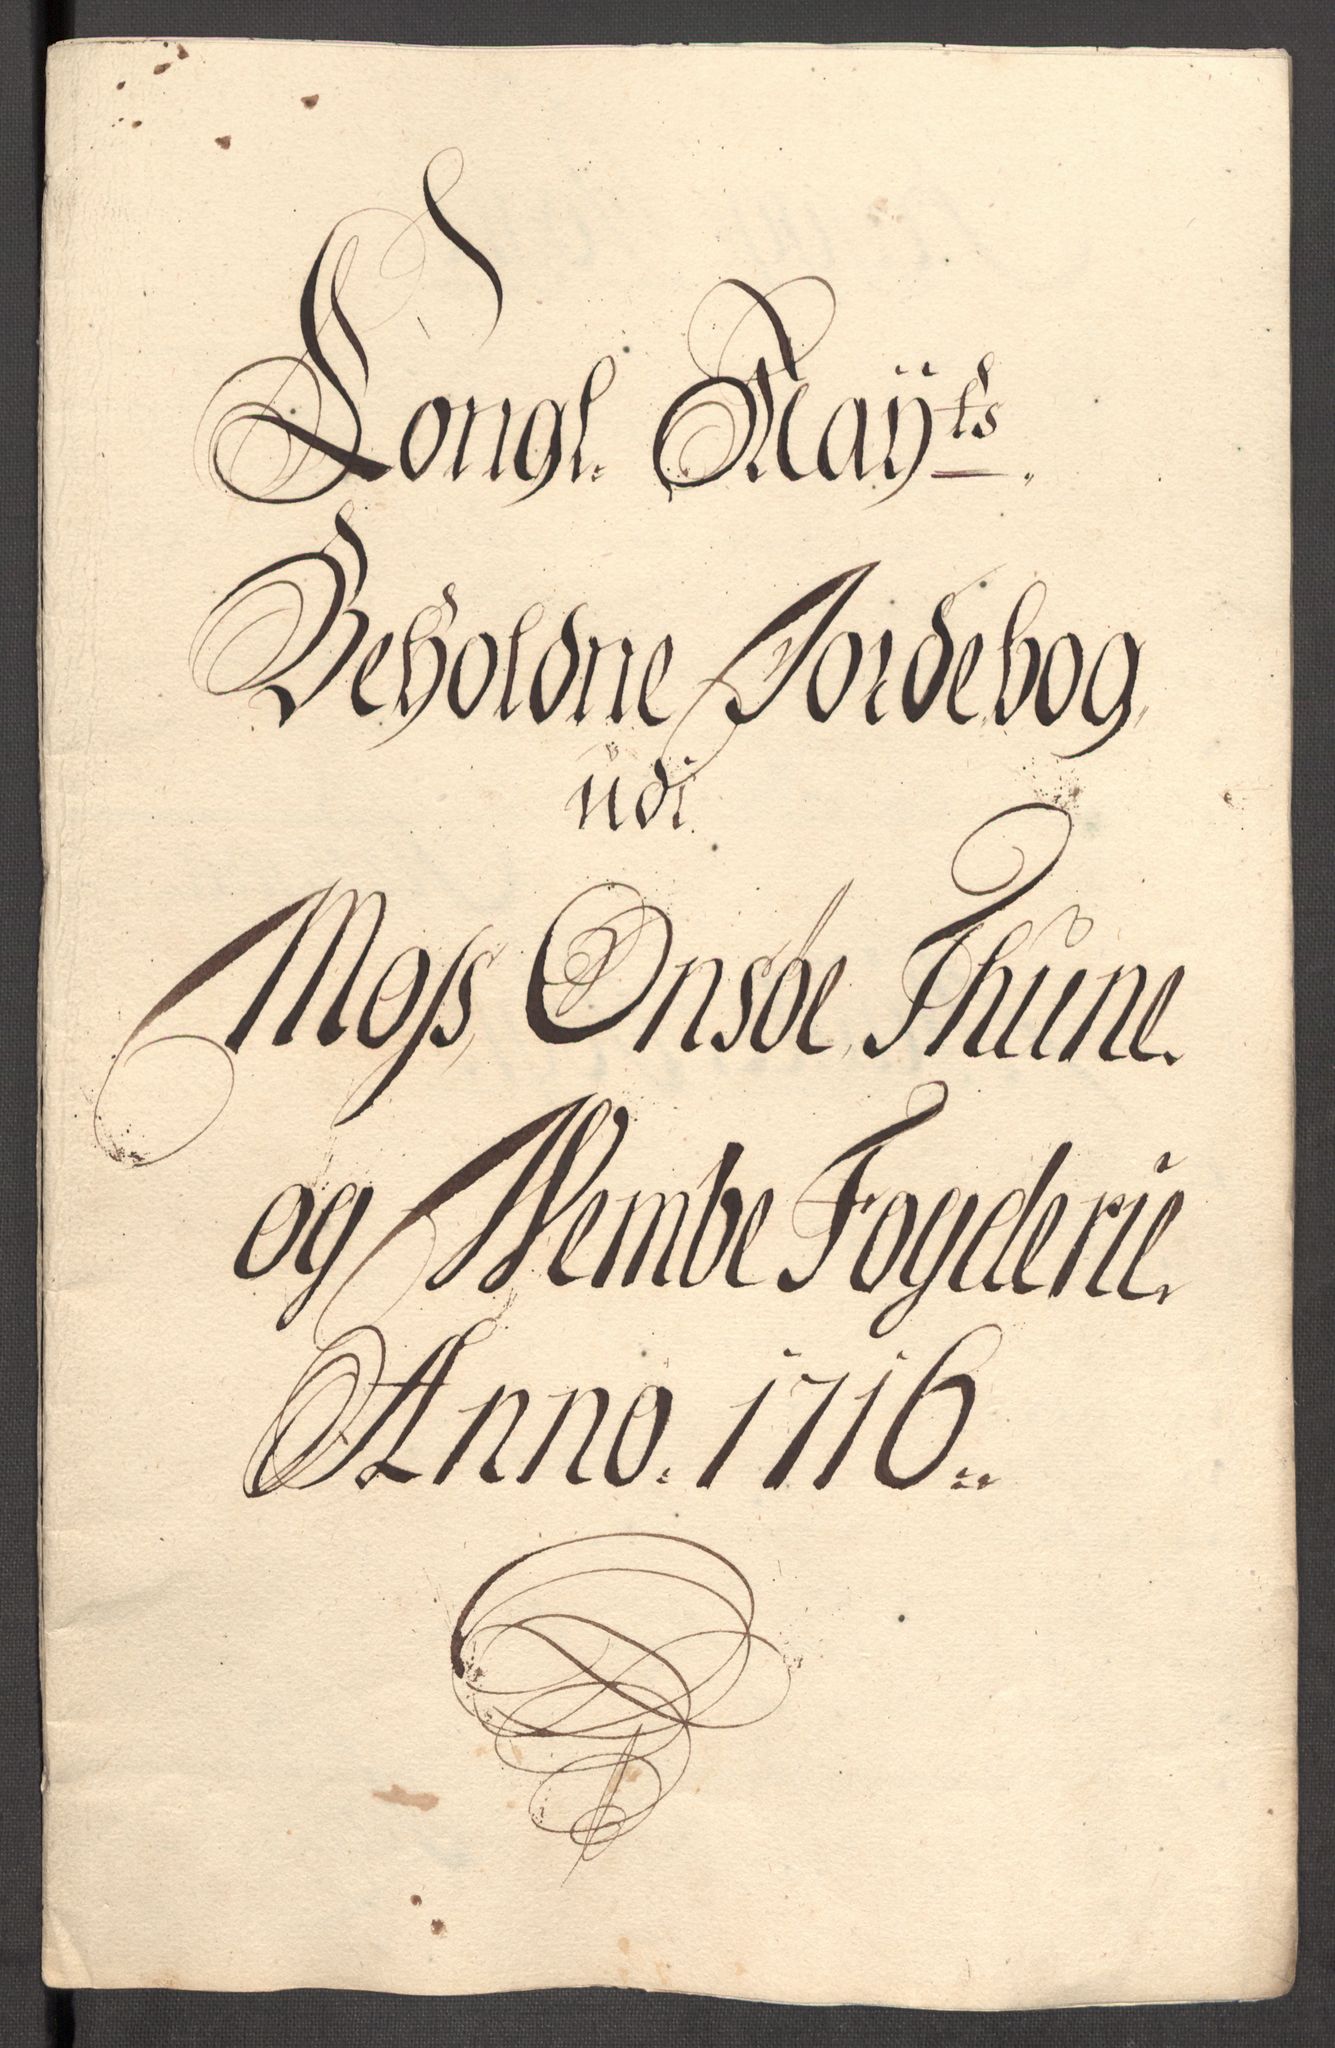 Kongl. Maÿts.
Beholdne Jordebog
udi
Moss, Onsöe, Thune.
og Wembe Fogderie.
Anno. 1716.